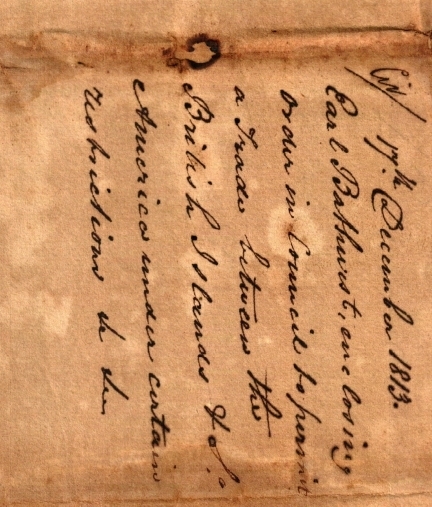 Civ/
17th December 1813.
Earl Bathurst, enclosing
Order in Council to permit
a Trade between the
British Islands & S.
America under certain
restrictions